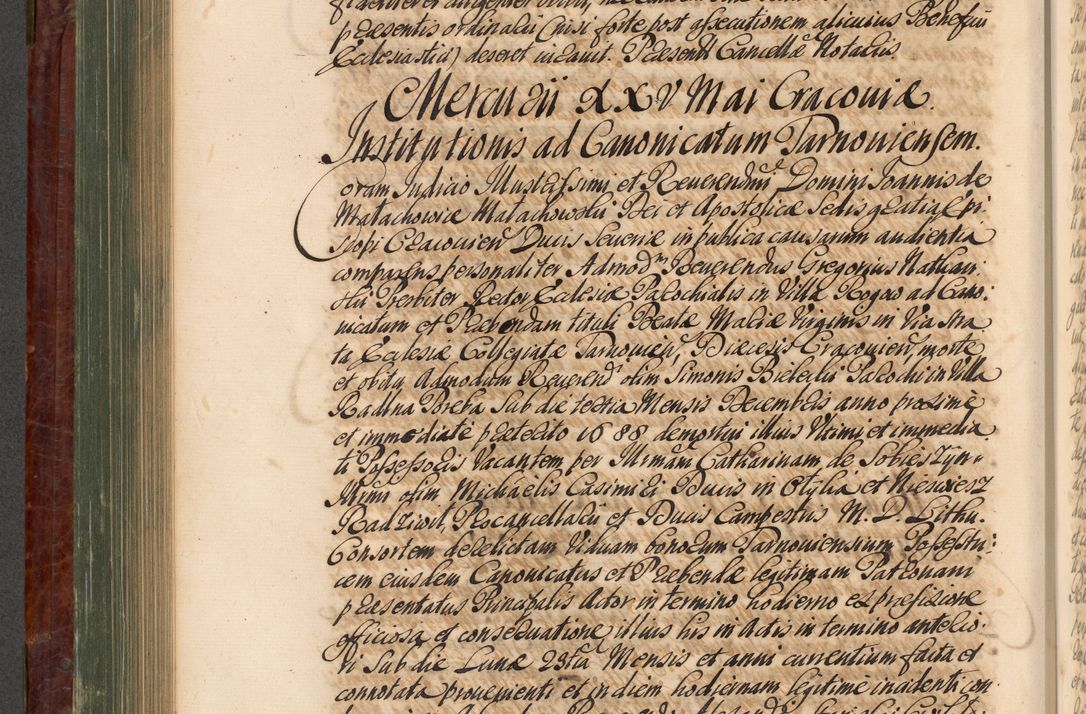 præsentis ordinarii (nisi forte post assecutionem alicuius Beneficii
Ecclesiastici) deseret incavit. Præsent. Cancellæ Notariis.
Mercurii XXV Mai Cracoviæ.
Institutionis ad Canonicatum Tarnoviensem.
Coram Judicio Illustrissimi et Reverendmi Domini Joannis de
Małachowice Małachowski Dei et Apostolicæ Sedis gratia Epi
scopi Cracovien Ducis Severiæ in publica causarum audientia
comparens personaliter Admodm Reverendus Gregorius Nathan
ski Presbiter Rector Ecclesiæ Parochialis in Villa Rogow ad Cano:
nicatum et Præbendam tituli Beatæ Mariæ Virginis in Via stra
ta Ecclesiæ Collegiatæ Tarnovien, Diæcesis Cracovien, morte
et obitu Admodum Reverend olim Simonis Parochi in Villa
Radlna Poreba Sub die tertia Mensis Decembris anno proxime
et immediate præterito 1688 demortui illius Ultimi et immedia
ti Possessoris Vacantem per Illmam Catharinam de Sobieszyn
Illrmi olim Michaelis Casimiri Ducis in Olyka et Nieswiesz
Radziwil, Procancellarii et Ducis Campestris M. D. Lithu.
Consortem derelictam Viduam bonorum Tarnoviensium Possesstri:
cem eiusdem Canonicatus et Præbendæ legitimam Patronam
præsentatus Principalis Actor in termino hodierno ex præfixione
officiosa et conservatione illius his in Actis in termino anterio:
ri Sub die Lunæ 23tia Mensis et anni currentium facta et
connotata proveniente et in diem hodiernam legitime incidenti com